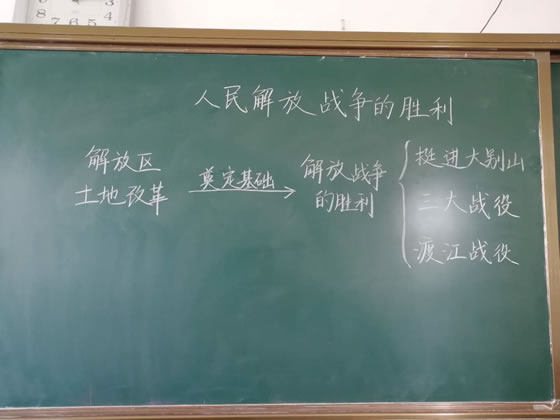 人民解放战争的胜利
解放区
土地改革
奠定基础
解放战争
的胜利
挺进大别山
三大战役
渡江战役
8
7
6
5
4